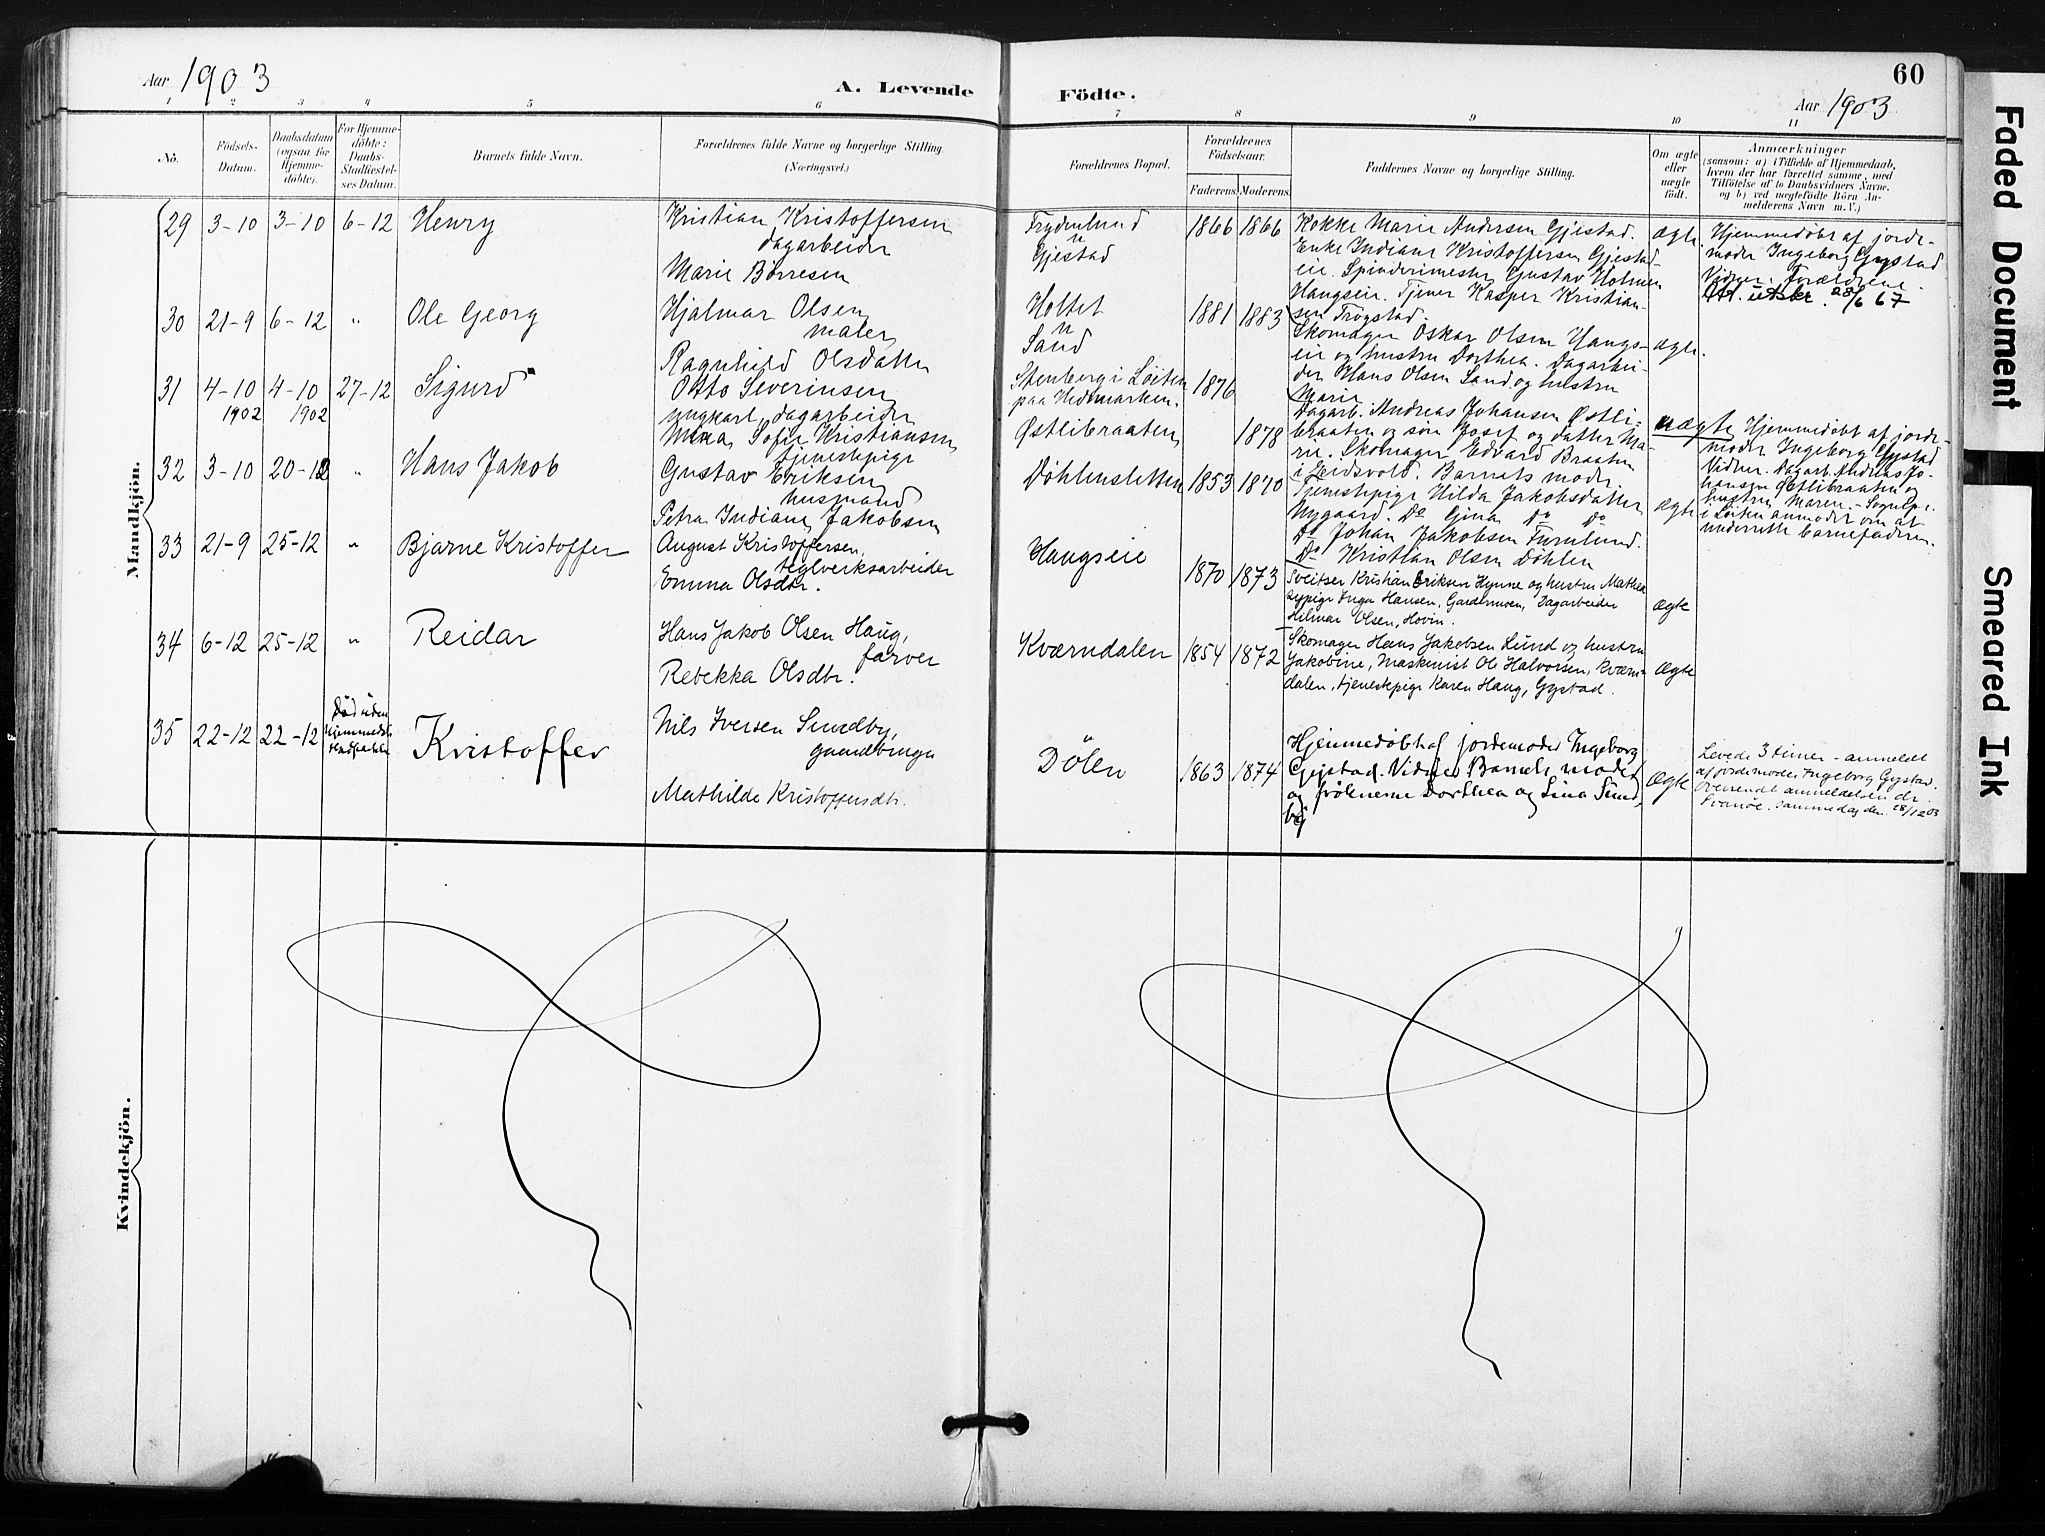 Aar 1903
A. Levende
Födte.
60
Aar 1903
1 2 3 4 5 6 7 8 9 10 11
No.
Födsels-Datum.
Daabsdatum (ogsaa for Hjemme-döbte).
For Hjemme-döbte: Daabs-Stadfæstel-ses Datum.
Barnets fulde Navn.
Forældrenes fulde Navne og borgerlige Stilling.
(Næringsvei.)
Forældrenes Bopæl.
Forældrenes Födselsaar.
Faderens. Moderens.
Faddernes Navne og borgerlige Stilling.
Om ægte eller uægte födt.
Anmærkninger
(saasom: a) i Tilfælde af Hjemmedaab,
hvem der har forrettet samme, med
Tilföielse af to Daabsvidners Navne,
og b) ved uægtefödte Börn An-
melderens Navn m. V.)
Mandkjön.
29 3-10 3-10 6-12 Henry
Kristian Kristoffersen
dagarbeider
Marie Børresen
Frydenlund
u
Gjestad
1866 1866
Kokke Marie Andersen Gjestad.
Enke Indiane Kristoffersen Gjestad-
eie. Spinderimester Gustav Holmen
Haugseie. Tjener Kasper Kristian-
sen Trøgstad.
ægte.
Hjemmedøbt af jorde-
moder Ingeborg Gystad
Vidner. Forældrene.
Att. utskr. 28/6 67
30 21-9 6-12 " Ole Georg
Hjalmar Olsen
maler
Ragnhild Olsdatter
Holtet
u
Sand
1881 1883
Skomager Oskar Olsen Haugs-
eie og hustru Dorthea. Dagarbei-
der Hans Olsen Sand og hustru
Marie
ægte.
31 4-10 1902 4-10 1902 27-12 Sigurd
Otto Severinsen
ungkarl, dagarbeider
Mina Sofie Kristiansen
tjenestepige
Stenberg i Løiten
paa Hedmarken.
Østlibraaten
1876
1878
Dagarb. Andreas Johansen Østli-
braaten og søn Josef og datter Ma-
rie. Skomager Edvard Braaten
i Eidsvold. Barnets moder
uægte
Hjemmedøbt af jorde-
moder Ingeborg Gystad
Vidner. Dagarb. Andreas Jo-
hansen Østlibraaten og
hustru Maren. - Sognepr.
i Løiten anmodet om at
underrette barnefaderen.
32 3-10 20-12 " Hans Jakob
Gustav Eriksen
husmand
Petra Indiane Jakobsen
Döhlensletten
1853 1870
Tjenestepige Hilda Jakobsdatter
Nygaard. Do Gina Do Do
Do Johan Jakobsen Furulund.
Do Kristian Olsen Döhlen
ægte
33 21-9 25-12 " Bjarne Kristoffer
August Kristoffersen,
teglverksarbeider
Emma Olsdtr.
Haugseie
1870 1873
Sveitser Kristian Eriksen Hynne og hustru Mathea
sypige Inga Hansen, Gardermoen, Dagarbeider
Hilmar Olsen, Hovin.
ægte
34 6-12 25-12 " Reidar
Hans Jakob Olsen Haug,
farver
Rebekka Olsdtr.
Kværndalen
1854 1872
Skomager Hans Jakobsen Lund og hustru
Jakobine, Maskinist Ole Halvorsen, Kværn-
dalen, tjenestepige Karen Haug, Gystad.
ægte
35 22-12 22-12 Død uden
Kristoffer
Nils Iversen Sundby,
gaardbruger
Mathilde Kristoffersdtr.
Dölen
1863 1874
Hjemmedøbt af jordemoder Ingeborg
Gystad. Vidner Barnets moder
og frøknerne Dorthea og Lina Sund-
by
ægte
Levede 3 timer - anmeldt
af jordemoder Ingeborg Gystad.
Oversendt anmeldelsen dr.
Svanøe. sammedag den 28/12 03
Kvindekjön.
Faded Document
Smeared Ink